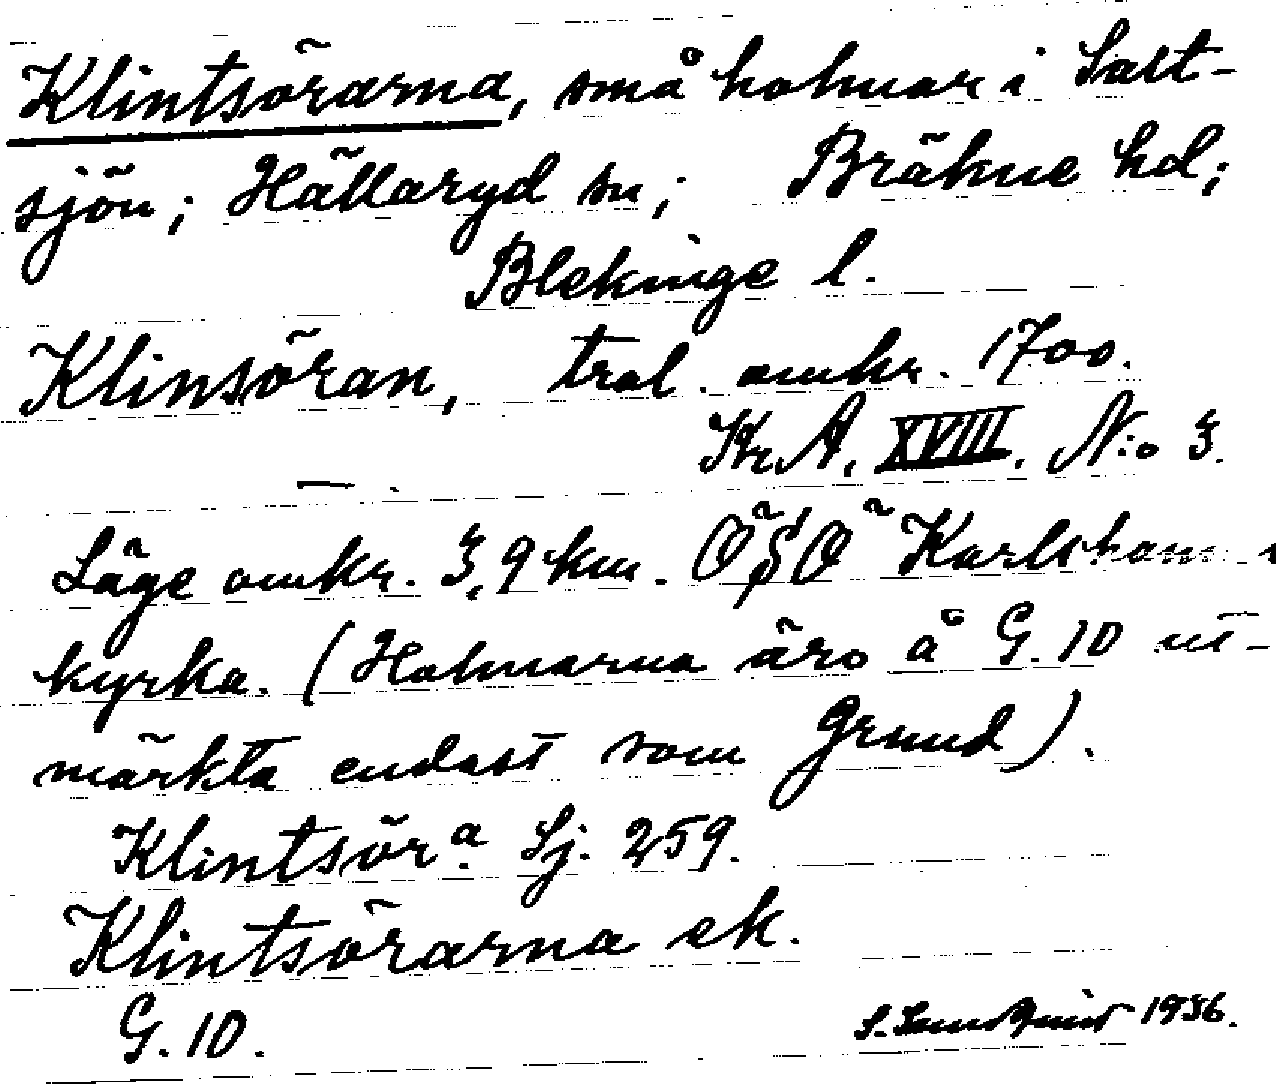 Klintsörarna, små holmar i Salt-
sjön; Hällaryd sn; Bräkne hd;
Blekinge l.
Klinsöran, trol. omkr. 1700.
Kr.A. XVIII. N:o 3.
Läge omkr. 3,9 km. ÖSÖ Karlshamns
kyrka. (Holmarna äro å G. 10 ut-
märkta endast som Grund).
Klintsör<sup>a</sup>. Sj. 259.
Klintsörarna ek.
G. 10.
1936.